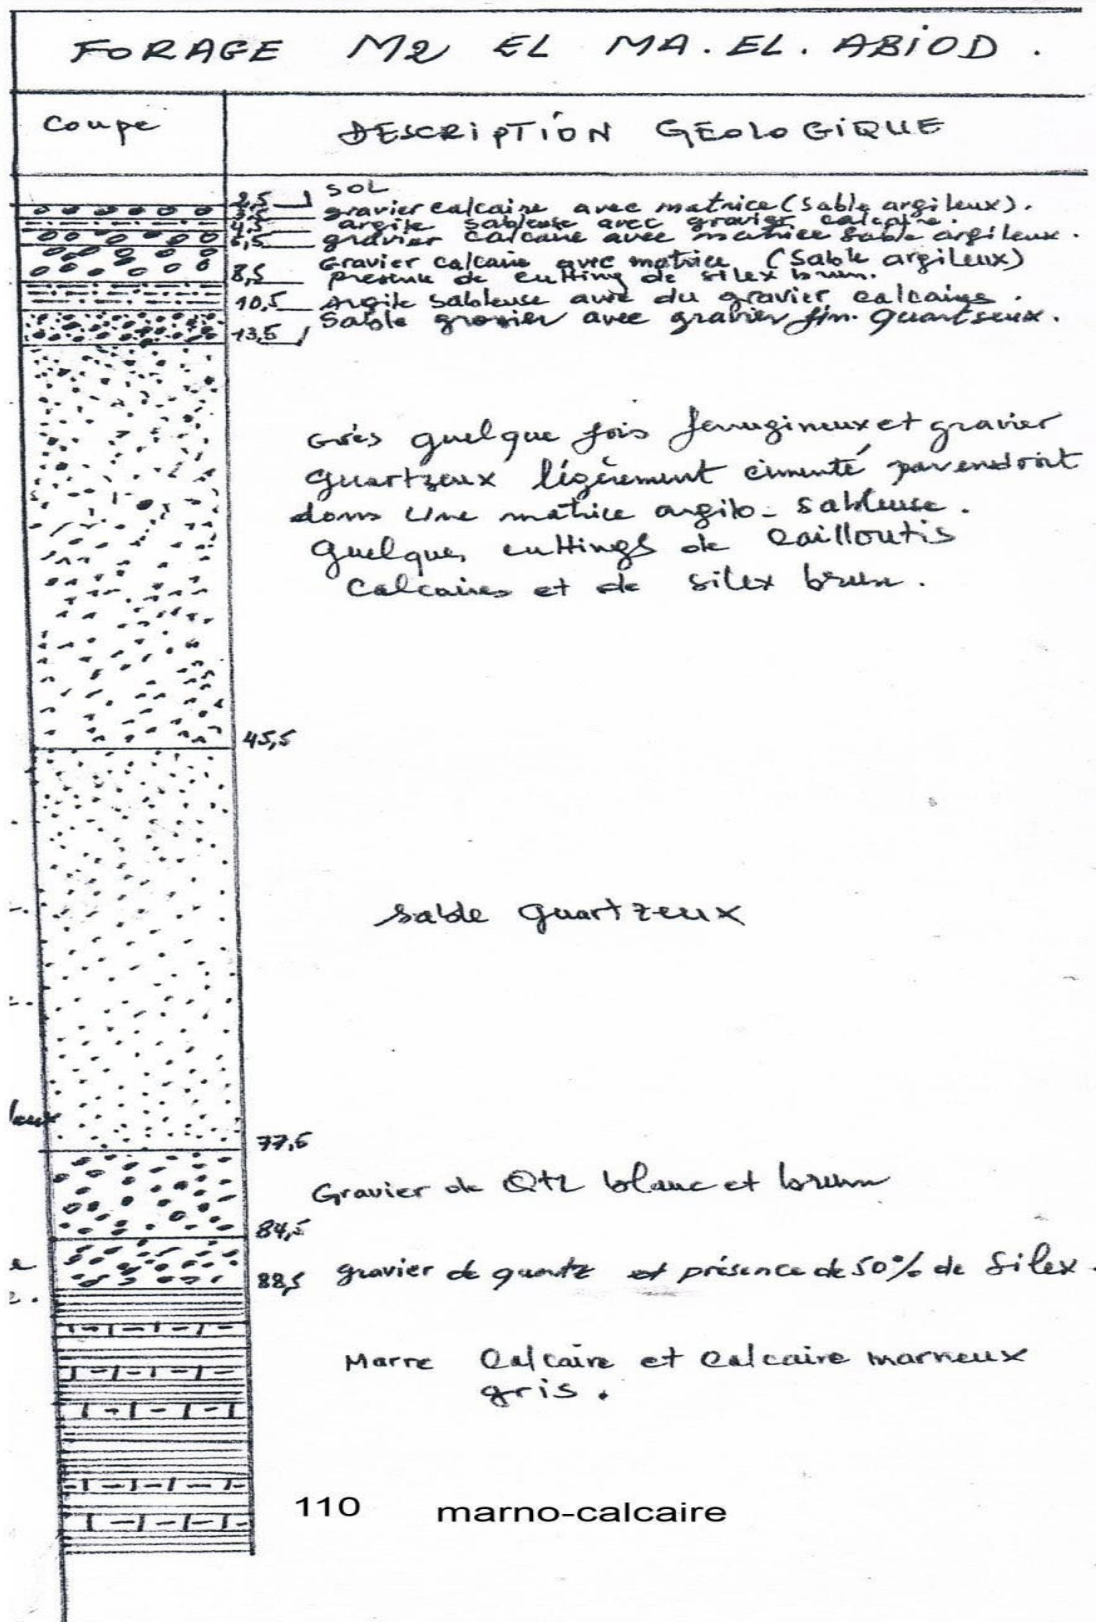 FORAGE M2 EL MA. EL. ABIOD .
Coupe
DESCRIPTION GEOLOGIQUE
SOL
2,5 gravier calcaire avec matrice (Sable argileux).
3,5 argile sableuse avec gravier calcaire.
4,5 gravier calcaire avec matrice sable argileux.
6,5
Gravier calcaire avec matrice (Sable argileux)
8,5 présence de cutting de silex brun.
10,5 Argile sableuse avec du gravier calcaire.
Sable grossier avec gravier fin quartseux.
13,5
Grès quelque fois ferrugineux et gravier
quartzeux légèrement cimenté par endroit
dans une matrice argilo-sableuse.
quelques cuttings de cailloutis
calcaires et de silex brun.
45,5
sable quartzeux
77,5
Gravier de Qtz blanc et brun
84,5
88,5 gravier de quartz et présence de 50% de Silex.
Marne Calcaire et calcaire marneux
gris.
110 marno-calcaire